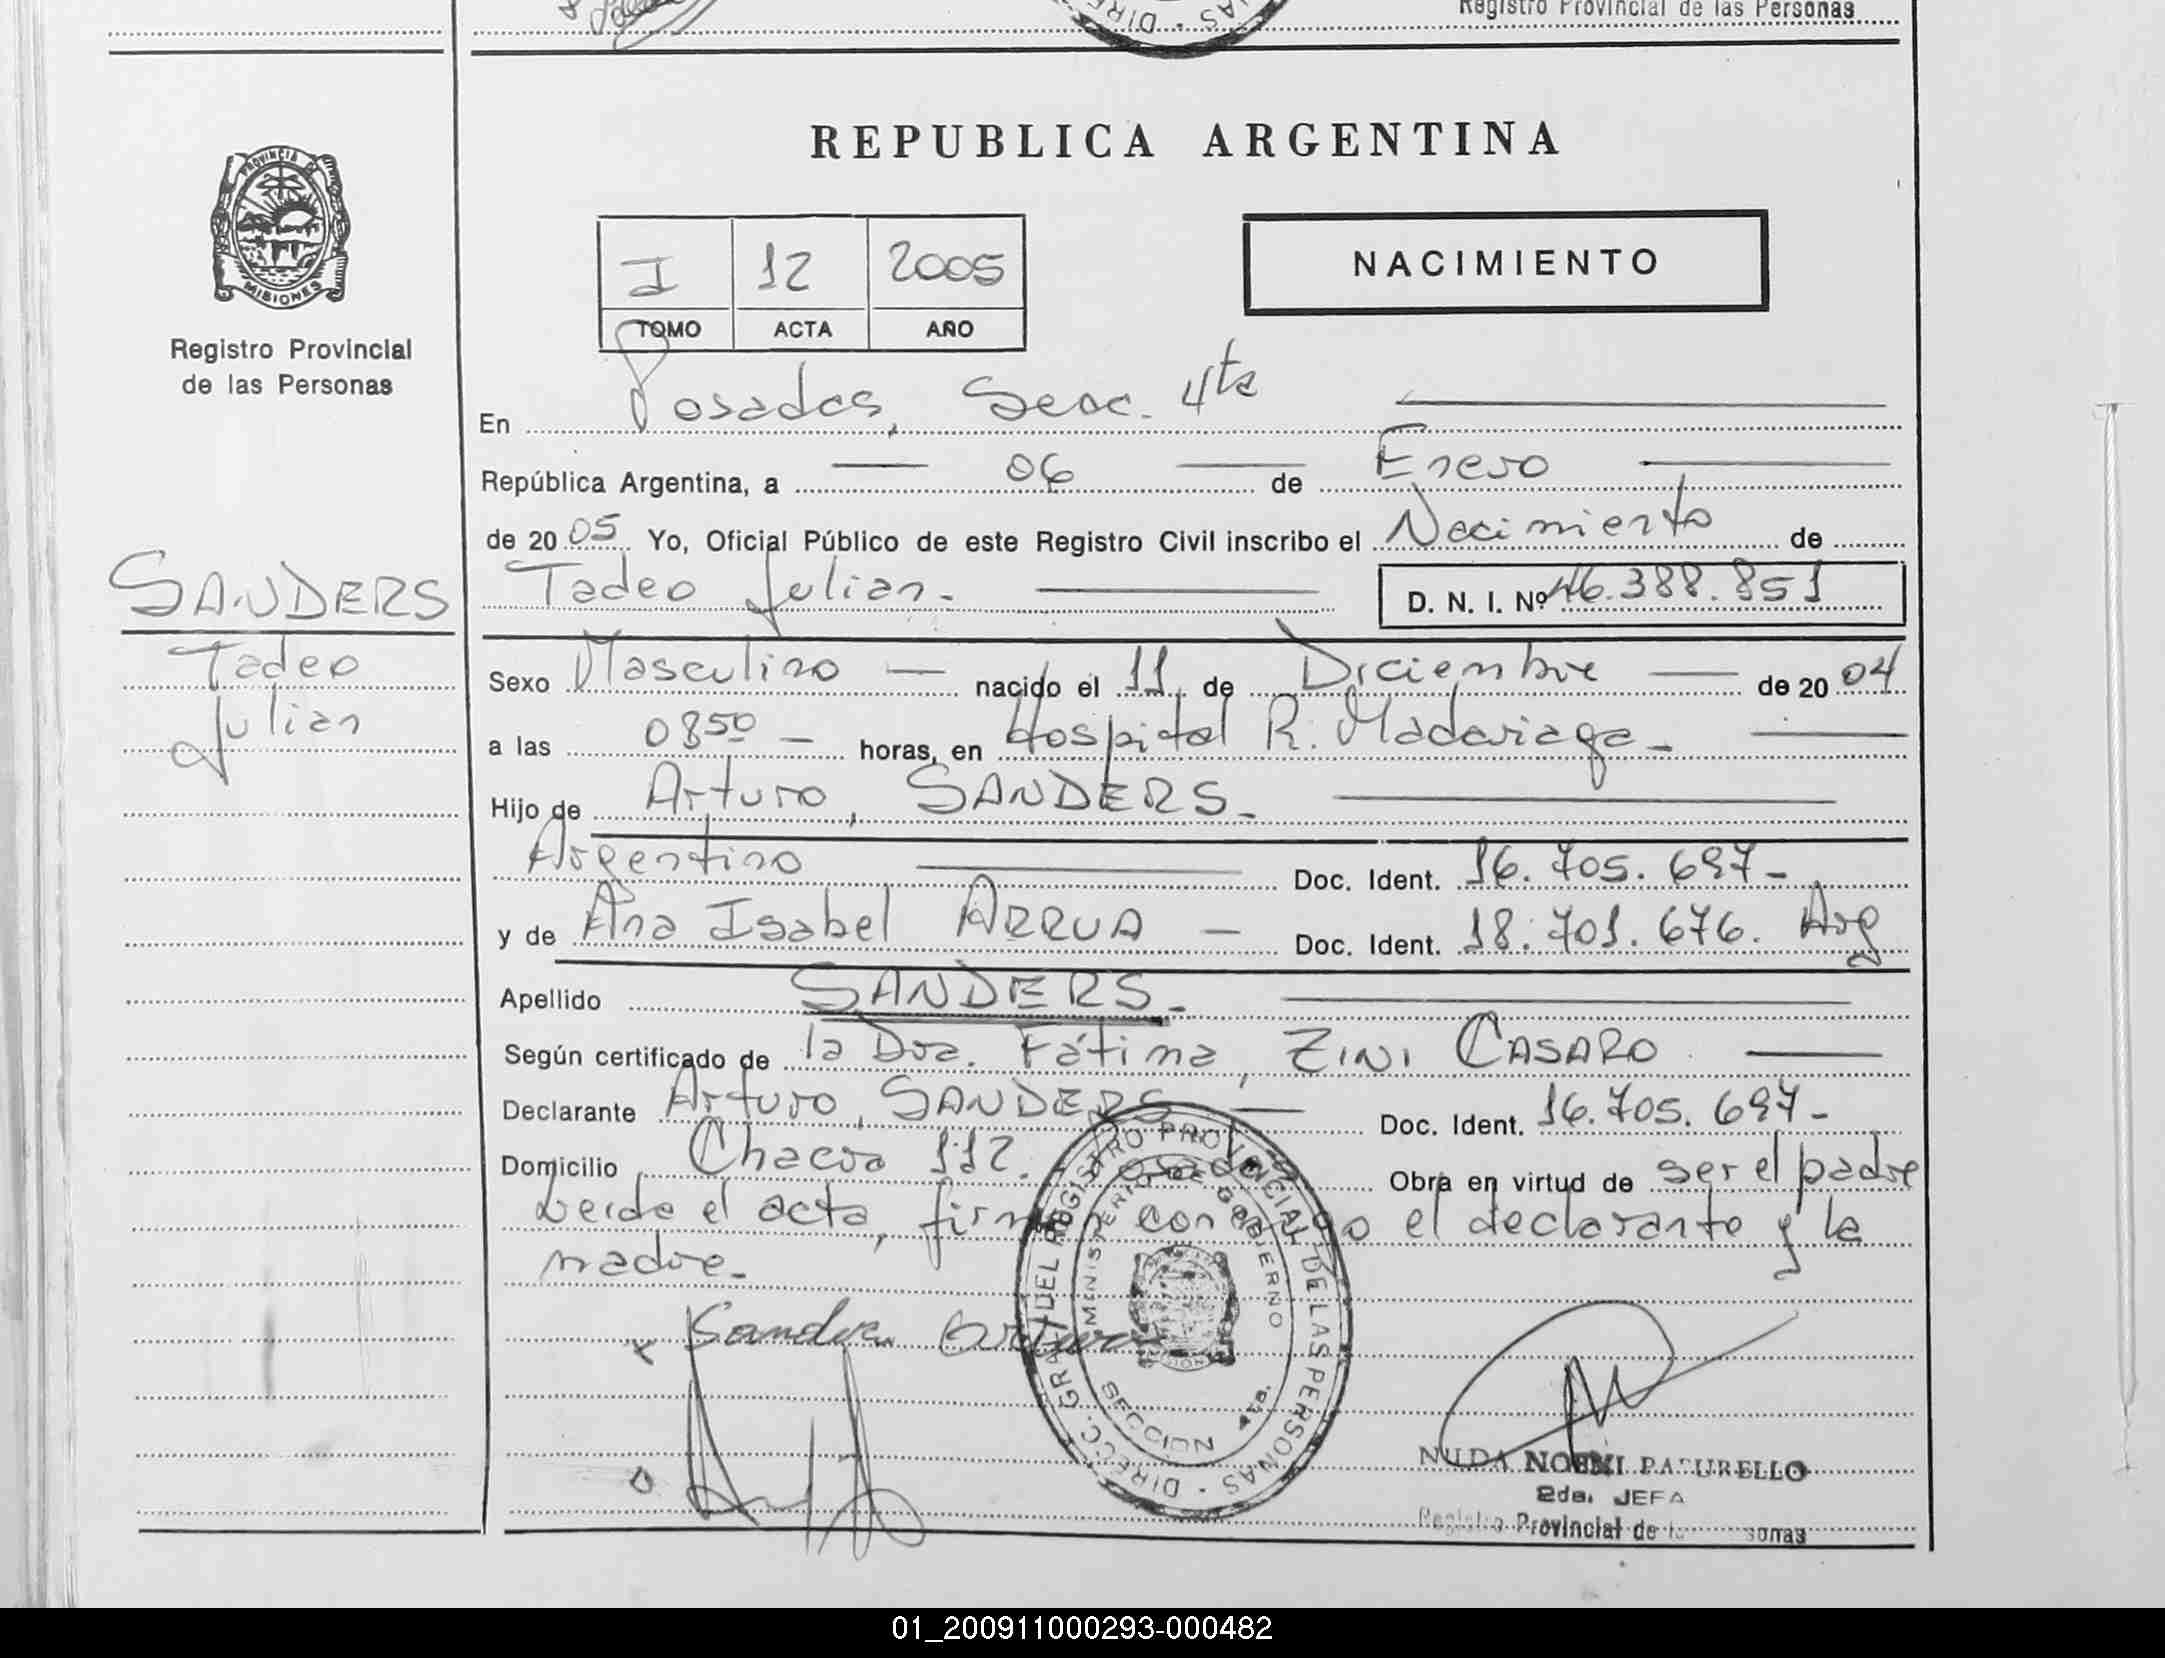 Registro Provincial de las Personas
REPUBLICA ARGENTINA
PROVINCIA DE
MISIONES
Registro Provincial
de las Personas
I 12 2005
TOMO ACTA AÑO
NACIMIENTO
En Posadas, Secc. 4ta
República Argentina, a 06 de Enero
de 2005 Yo, Oficial Público de este Registro Civil inscribo el Nacimiento de
Tadeo Julian. D. N. I. Nº 46.388.851
SANDERS
Tadeo
Julian
Sexo Masculino nacido el 11 de Diciembre de 2004
a las 0850 horas, en Hospital R. Madariaga
Hijo de Arturo, SANDERS.
Argentino Doc. Ident. 16.705.697
y de Ana Isabel ARRUA Doc. Ident. 18.701.676. Arg
Apellido SANDERS
Según certificado de la Dra. Fátima, ZINI CASARO
Declarante Arturo, SANDERS Doc. Ident. 16.705.697
Domicilio Chacra 112. Posadas Obra en virtud de ser el padre
Leida el acta, firman conmigo el declarante y la
madre.
Sander Arturo
DIRECC. GRAL. DEL REGISTRO PROVINCIAL DE LAS PERSONAS
MINISTERIO DE GOBIERNO
SECCION 4ta.
NILDA NOEMI
2da. JEFA
Registro Provincial de las Personas
01_200911000293-000482